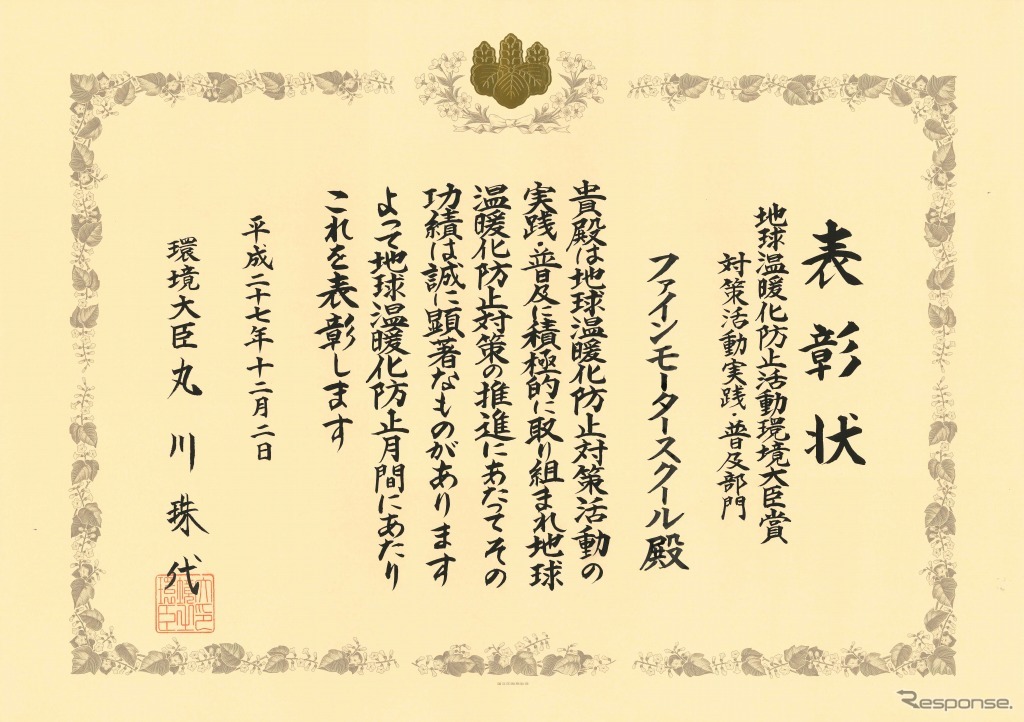 表彰状
地球温暖化防止活動環境大臣賞
対策活動実践・普及部門
ファインモータースクール殿
貴殿は地球温暖化防止対策活動の
実践・普及に積極的に取り組まれ地球
温暖化防止対策の推進にあたってその
功績は誠に顕著なものがあります
よって地球温暖化防止月間にあたり
これを表彰します
平成二十七年十二月二日
環境大臣丸川珠代
Response.